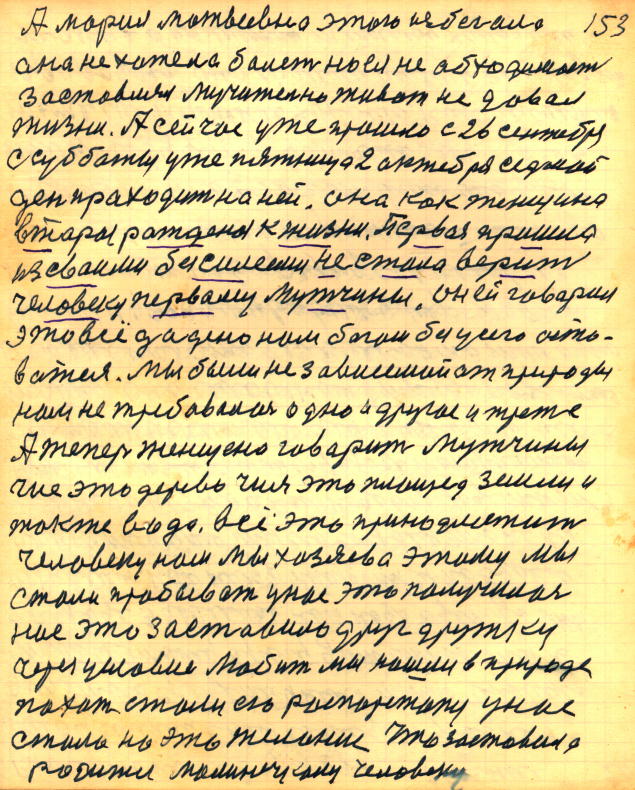 153
А мария матвеевна этого избегала
она не хотела болет но ея не обходит
заставлял мучително живот не давал
жизни. А сейчас уже прошло с 26 сентября
с субботы уже пятница 2 октября седмой
ден праходит на ней. она как женщина
втарая раждена к жизни. Первая пришла
из сваими бессилеми не стала верит
человеку первому мужчины. он ей говарил
это всё дадено нам богом без усего оста-
ватся. Мы были не зависемой от природы
нам не требавалося одно и другое и трете
А тепер женщено говарит мужчины
чие это дерево чия это площед земли и
также вода. всё это принадлежит
человеку нам мы хазяева этому мы
стали пробыват у нас это получилося
нас это заставило друг дружку
через условие любит мы нашли в природе
пахот стали ею распоряжат у нас
стало на это желание Что заставило
родится малинечкаму человеку